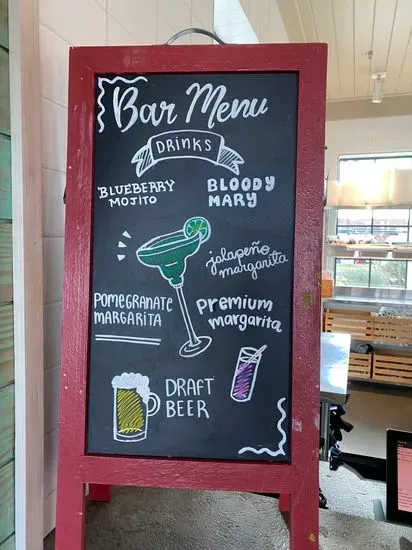 Bar Menu
DRINKS
BLUEBERRY
MOJITO
BLOODY
MARY
jalapeño
margarita
POMEGRANATE
MARGARITA
Premium
margarita
DRAFT
BEER